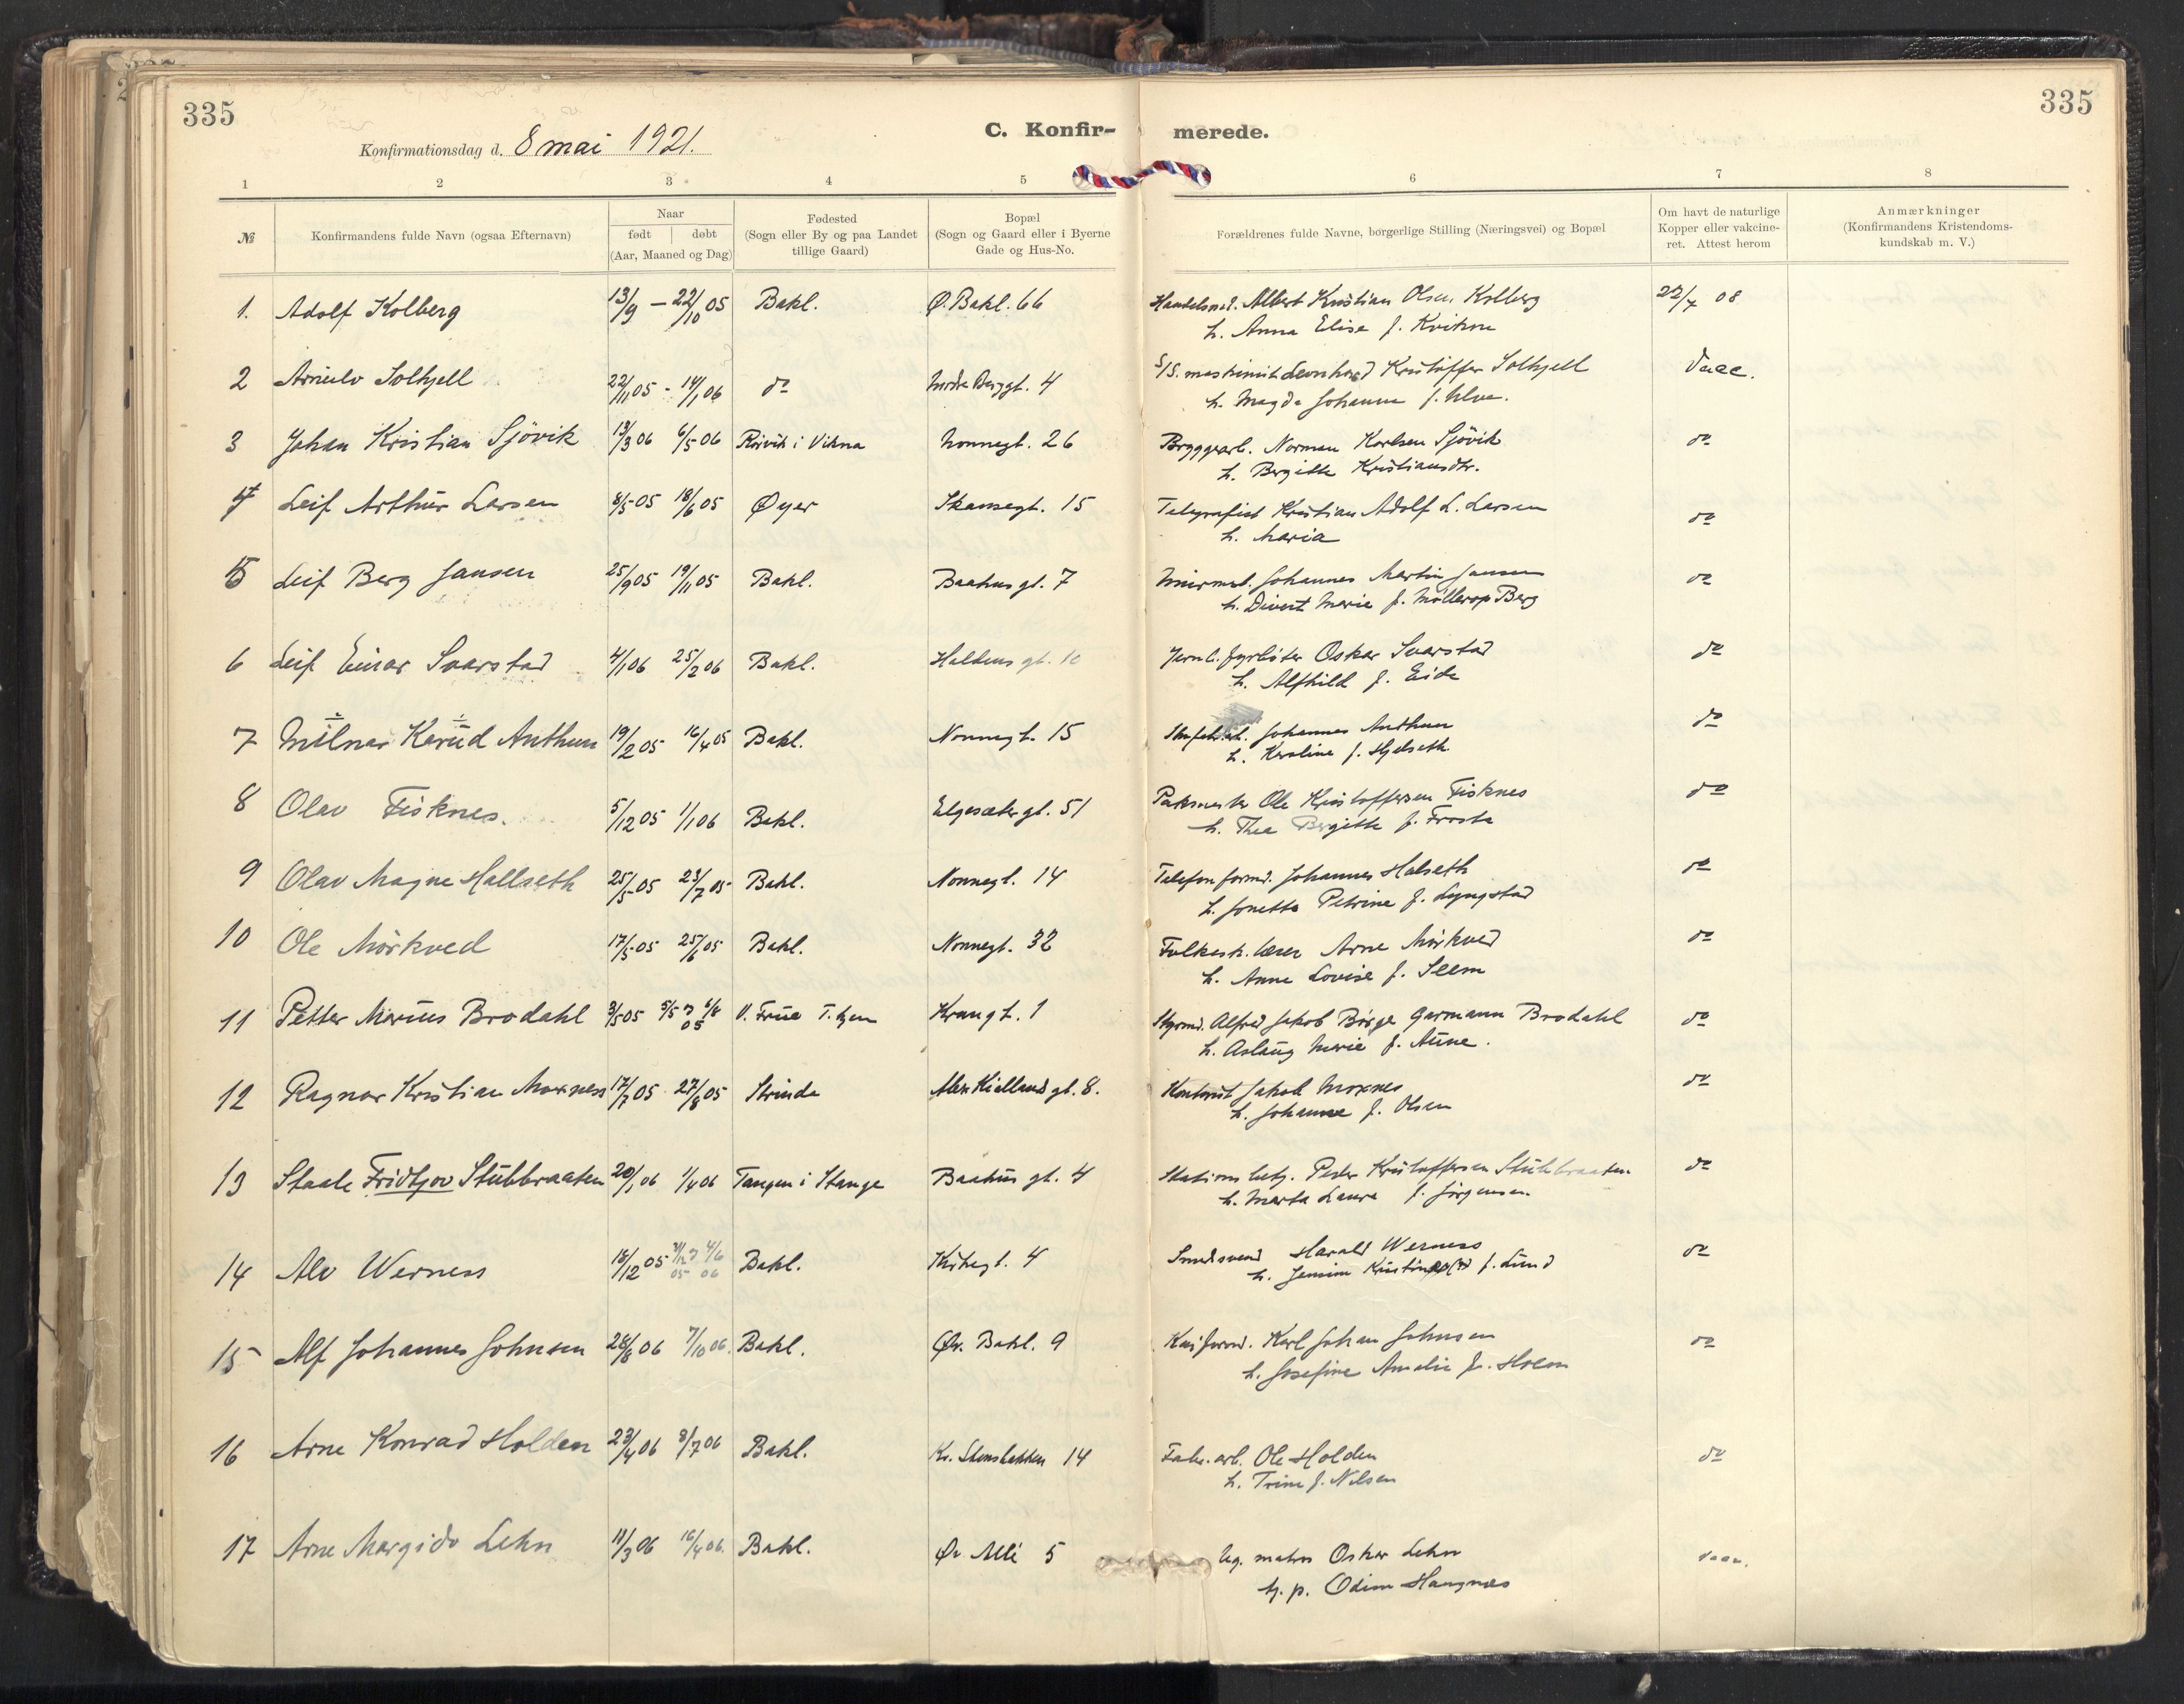 335
335
Konfirmationsdag d. 8 mai 1921.
C. Konfir- merede.
1 2 3 4 5 6 7 8
№
Konfirmandens fulde Navn (ogsaa Efternavn)
Naar
født døbt
(Aar, Maaned og Dag)
Fødested
(Sogn eller By og paa Landet
tillige Gaard)
Bopæl
(Sogn og Gaard eller i Byerne
Gade og Hus-No.
Forældrenes fulde Navne, borgerlige Stilling (Næringsvei) og Bopæl
Om havt de naturlige
Kopper eller vakcine-
ret. Attest herom
Anmærkninger
(Konfirmandens Kristendoms-
kundskab m. V.)
1. Adolf Kolberg 13/9 – 22/10 05 Bakl. Ø. Bakl. 66 Handelsmd. Albert Kristian Olsen Kolberg 22/7 08
h. Anna Elise f. Kvikne
2 Arnulv Solhjell 22/11 05 - 14/1 06 do Nordre Berggt. 4 S/S. maskinist Leonhard Kristoffer Solhjell Vacc.
h. Magda Johanna f. Ulve.
3 Johan Kristian Sjövik 13/3 06 6/5 06 Rörvik i Vikna Nonnegt. 26 Bryggearb. Norman Karlsen Sjövik do
h. Bergitte Kristiansdtr.
4 Leif Arthur Larsen 8/5 05 18/6 05 Øyer Skansegt. 15 Telegrafist Kristian Adolf L. Larsen do
h. Maria
5 Leif Berg Jansen 25/9 05 19/11 05 Bakl. Baahus gt. 7 Murmst. Johannes Martin Jansen do
h. Divert Marie f. Möllerop Berg
6 Leif Einar Svarstad 4/1 06 25/2 06 Bakl. Haldens gt. 10 Jernb. fyrböter Oskar Svarstad do
h. Alfhild f. Eide
7 Milnar Karud Anthun 19/2 05 16/4 05 Bakl. Nonnegt. 15 Johannes Anthun do
h. Karoline f. Hjelseth
8 Olav Fisknes. 5/12 05 1/1 06 Bakl. Elgesæter gt. 51 Pakmester Ole Kristoffersen Fisknes do
h. Thea Bergitte f. Frosta
9 Olav Magne Hallseth 25/5 05 23/7 05 Bakl. Nonnegt. 14 Telefonformd. Johannes Halseth do
h. Jonetta Petrine f. Lyngstad
10 Ole Mörkved 17/5 05 25/6 05 Bakl. Nonnegt. 32 Folkesk. lærer Arne Mörkved do
h. Anne Lovise f. Seem
11 Petter Marius Brodahl 3/5 05 5/5 6/8 05 V. Frue T.hjem Krangt. 1 Styrmd. Alfred Jakob Börge Garmann Brodahl do
h. Aslaug Marie f. Aune.
12 Ragnar Kristian Moxness 17/7 05 27/8 05 Strinda Alex Kielland gt. 8. Kontorist Jakob Moxnes do
h. Johanne f. Olsen
13 Staale Fridtjov Stubbraaten 20/1 06 1/4 06 Tangen i Stange Baahus gt. 4 Stations betj. Peder Kristoffersen Stubbraaten do
h. Marta Laura f. Jörgensen
14 Alv Werness 18/12 05 31/12 05 4/6 06 Bakl. Kirkegt. 4 Smedsvend Harald Werness do
h. Jensine f. Lund
15 Alf Johannes Johnsen 28/8 06 7/10 06. Bakl. Øv. Bakl. 9 Kaiformd. Karl Johan Johnsen do
h. Josefine Amalie f. Holm
16 Arne Konrad Holden 23/4 06 8/7 06 Bakl. Kr. Stensbakken 14 Fabr. arb. Ole Holden do
h. Trine f. Nilsen
17 Arne Margido Lehn 11/3 06 16/4 06. Bakl. Øv Allé 5 Ug. matros Oskar Lehn vacc.
h. p. Odine Haugnæs